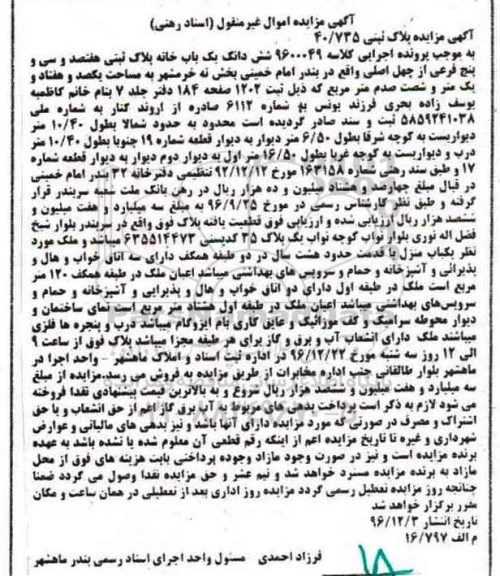 آگهی مزایده اموال غیرمنقول (اسناد رهنی)
آگهی مزایده پلاک ثبتی ۴۰/۷۳۵
به موجب پرونده اجرایی کلاسه ۹۶۰۰۰۴۹ شش دانگ یک باب خانه پلاک ثبتی هفتصد و سی و
پنج فرعی از چهل اصلی واقع در بندر امام خمینی بخش نه خرمشهر به مساحت یکصد و هفتاد و
یک متر و شصت صدم متر مربع که ذیل ثبت ۱۲۰۲ صفحه ۱۸۴ دفتر جلد ۷ بنام خانم کاظمیه
یوسف زاده بحری فرزند یونس به شماره ملی ۶۱۱۲ صادره از اروند کنار به شماره ملی
۵۸۵۹۲۴۱۰۳۸ ثبت و سند صادر گردیده است محدود به حدود شمالا بطول ۱۰/۴۰ متر
دیواریست به کوچه شرقا بطول ۶/۵۰ متر دیوار به دیوار قطعه شماره ۱۹ جنوبا بطول ۱۰/۴۰ متر
درب و دیواریست به کوچه غربا بطول ۱۶/۵۰ متر اول به دیوار دوم دیوار به دیوار قطعه شماره
۱۷ و طبق سند رهنی شماره ۱۶۳۱۵۸ مورخ ۹۲/۱۲/۱۲ تنظیمی دفترخانه ۳۲ بندر امام خمینی
در قبال مبلغ چهارصد و هشتاد میلیون و ده هزار ریال در رهن بانک ملت شعبه سربندر قرار
گرفته و طبق نظر کارشناس رسمی در مورخ ۹۶/۹/۲۵ به مبلغ سه میلیارد و هفت میلیون و
ششصد هزار ریال ارزیابی شده و ارزیابی فوق قطعیت یافته پلاک فوق واقع در سربندر بلوار شیخ
فضل اله نوری بلوار نواب کوچه نواب یک پلاک ۳۵ کدپستی ۶۳۵۵۱۴۴۷۳ میباشد و ملک مورد
نظر یکباب منزل با قدمت حدود هشت سال در دو طبقه همکف دارای سه اتاق خواب و هال و
پذیرائی و آشپزخانه و حمام و سرویس های بهداشتی میباشد اعیان ملک در طبقه همکف ۱۲۰ متر
مربع است ملک در طبقه اول دارای دو اتاق خواب و هال و پذیرایی و آشپزخانه و حمام و
سرویس‌های بهداشتی میباشد اعیان ملک در طبقه اول هشتاد متر مربع است نمای ساختمان و
دیوار محوطه سرامیک و کف موزائیک و عایق کاری بام ایزوگام میباشد درب و پنجره ها فلزی
میباشند ملک دارای انشعاب آب و برق و گاز برای هر طبقه مجزا میباشد پلاک فوق از ساعت ۹
الی ۱۲ روز سه شنبه مورخ ۹۶/۱۲/۲۲ در اداره ثبت اسناد و املاک ماهشهر - واحد اجرا در
ماهشهر بلوار طالقانی جنب اداره مخابرات از طریق مزایده به فروش می رسد.مزایده از مبلغ
سه میلیارد و هفت میلیون و ششصد هزار ریال شروع و به بالاترین قیمت پیشنهادی نقدا فروخته
می شود لازم به ذکر است پرداخت بدهی های مربوط به آب برق گاز اعم از حق انشعاب و یا حق
اشتراک و مصرف در صورتی که مورد مزایده دارای آنها باشد و نیز بدهی های مالیاتی و عوارض
شهرداری و غیره تا تاریخ مزایده اعم از اینکه رقم قطعی آن معلوم شده یا نشده باشد به عهده
برنده مزایده است و نیز در صورت وجود مازاد وجوه پرداختی بابت هزینه های فوق از محل
مازاد به برنده مزایده مسترد خواهد شد و نیم عشر و حق مزایده نقدا وصول می گردد ضمنا
چنانچه روز مزایده تعطیل رسمی گردد مزایده روز اداری بعد از تعطیلی در همان ساعت و مکان
مقرر برگزار خواهد شد
تاریخ انتشار ۹۶/۱۲/۳
م الف ۱۶/۷۹۷
فرزاد احمدی مسئول واحد اجرای اسناد رسمی بندر ماهشهر